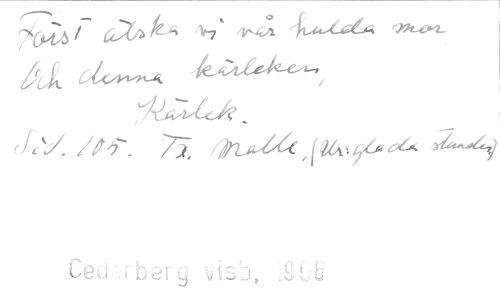 Först älska vi vår hulda mor,
Och denna kärleken,
Kärlek.
Sid. 105. Tr. Malle, (Ur: glada stunder)
Cederberg visb, 1906